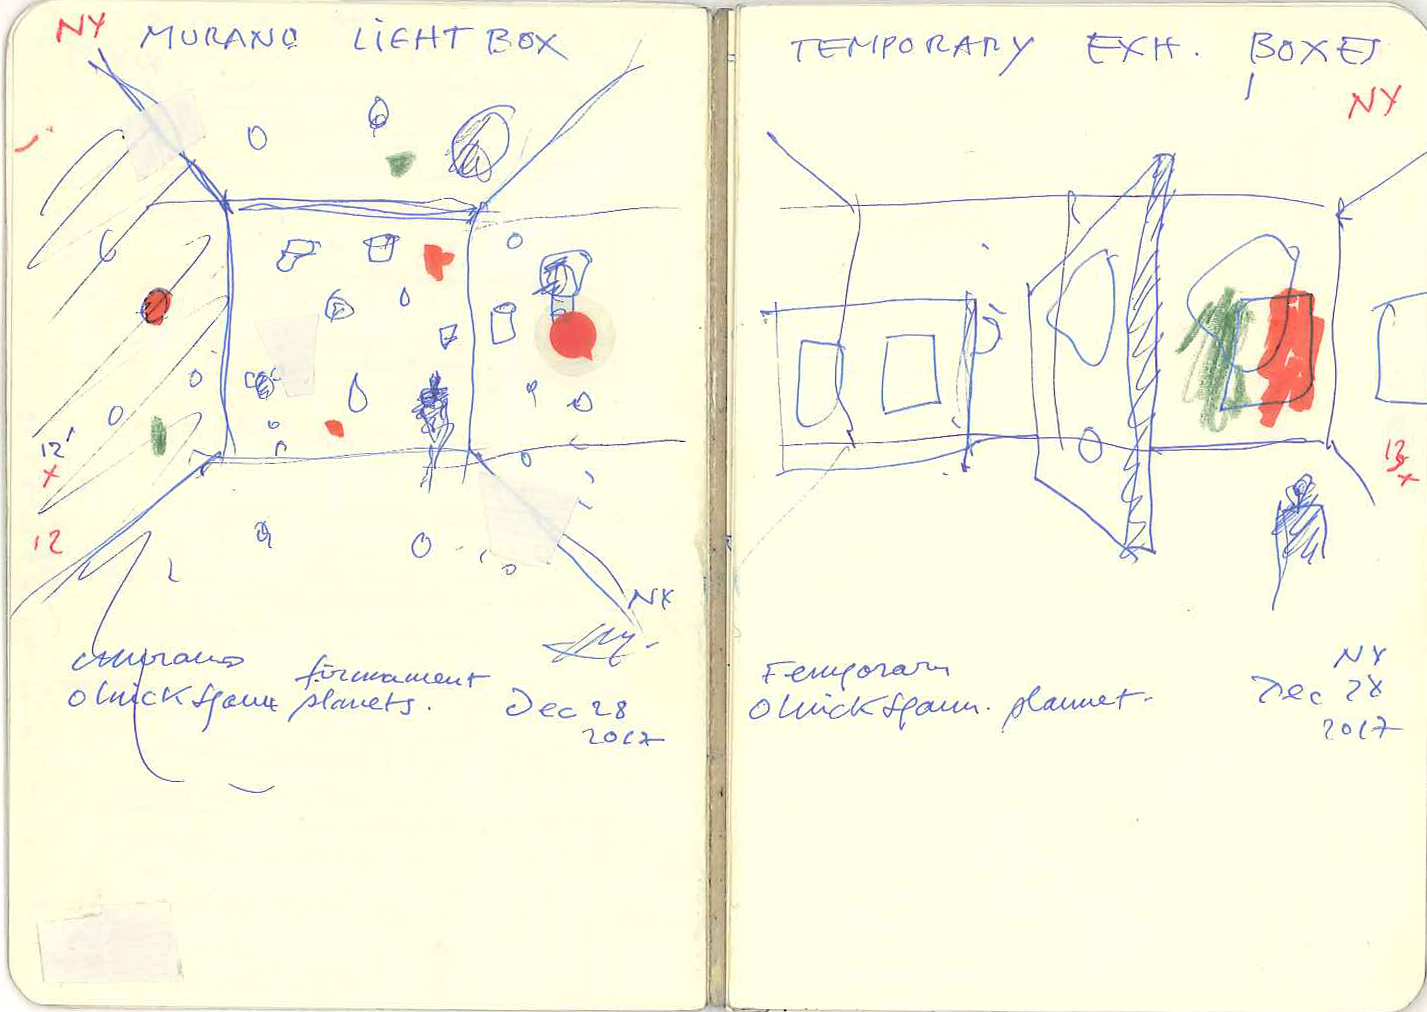 NY MURANO LIGHT BOX
12'
x
12
NY
murano firmament
planets.
Dec 28
2017
TEMPORARY EXH. BOXES
NY
13
x
Temporary
NY
Dec 28
2017